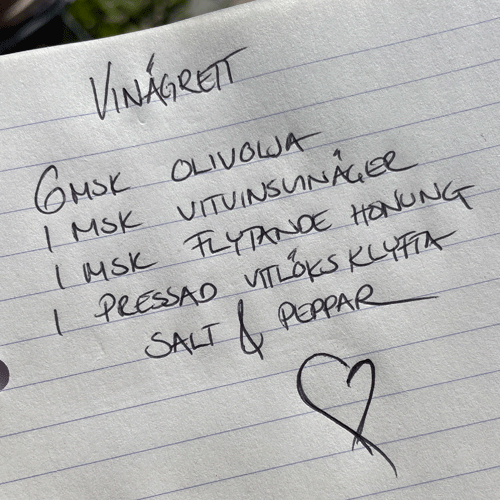 VINÄGRETT
6 MSK OLIVOLJA
1 MSK VITVINSVINÄGER
1 MSK FLYTANDE HONUNG
1 PRESSAD VITLÖKSKLYFTA
SALT & PEPPAR